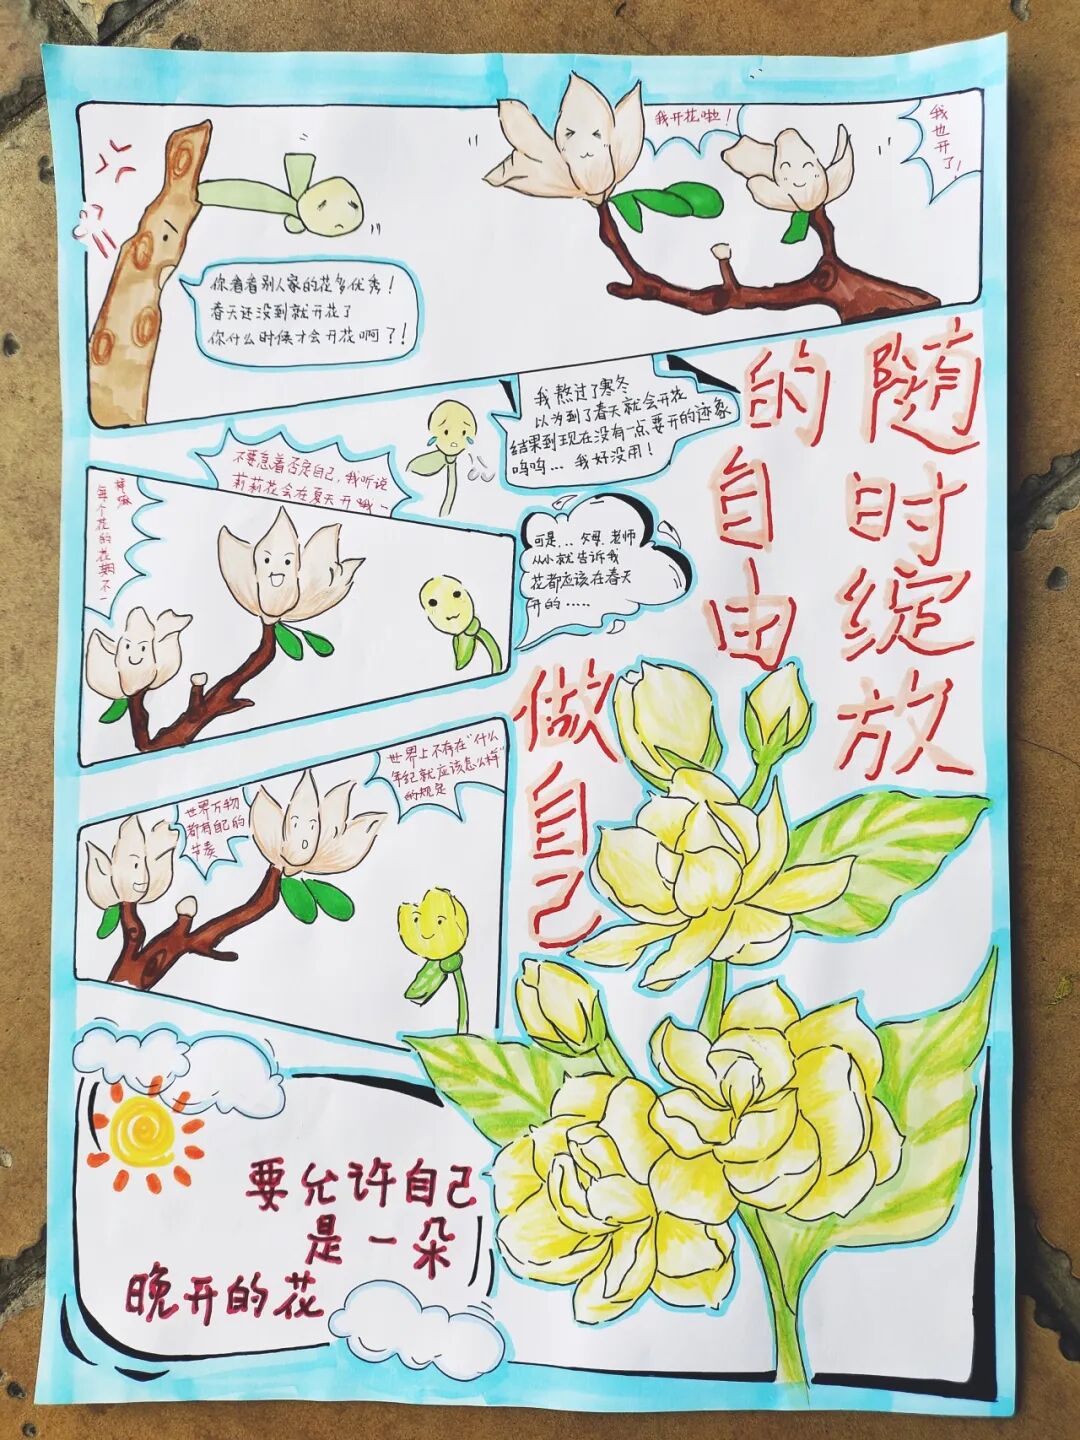 我开花啦！
我也开了！
你看看别人家的花多优秀！
春天还没到就开花了
你什么时候才会开花啊？！
我熬过了寒冬
以为到了春天就会开花
结果到现在没有一点要开的迹象
呜呜... 我好没用！
不要急着否定自己，我听说
茉莉花会在夏天开哦~
每个花的花期不一
样嘛
可是... 父母、老师
从小就告诉我
花都应该在春天
开的......
世界万物
都有自己的
节奏
世界上不存在“什么
年纪就应该怎么样”
的规定
随时绽放
的自由
做自己
要允许自己
是一朵
晚开的花